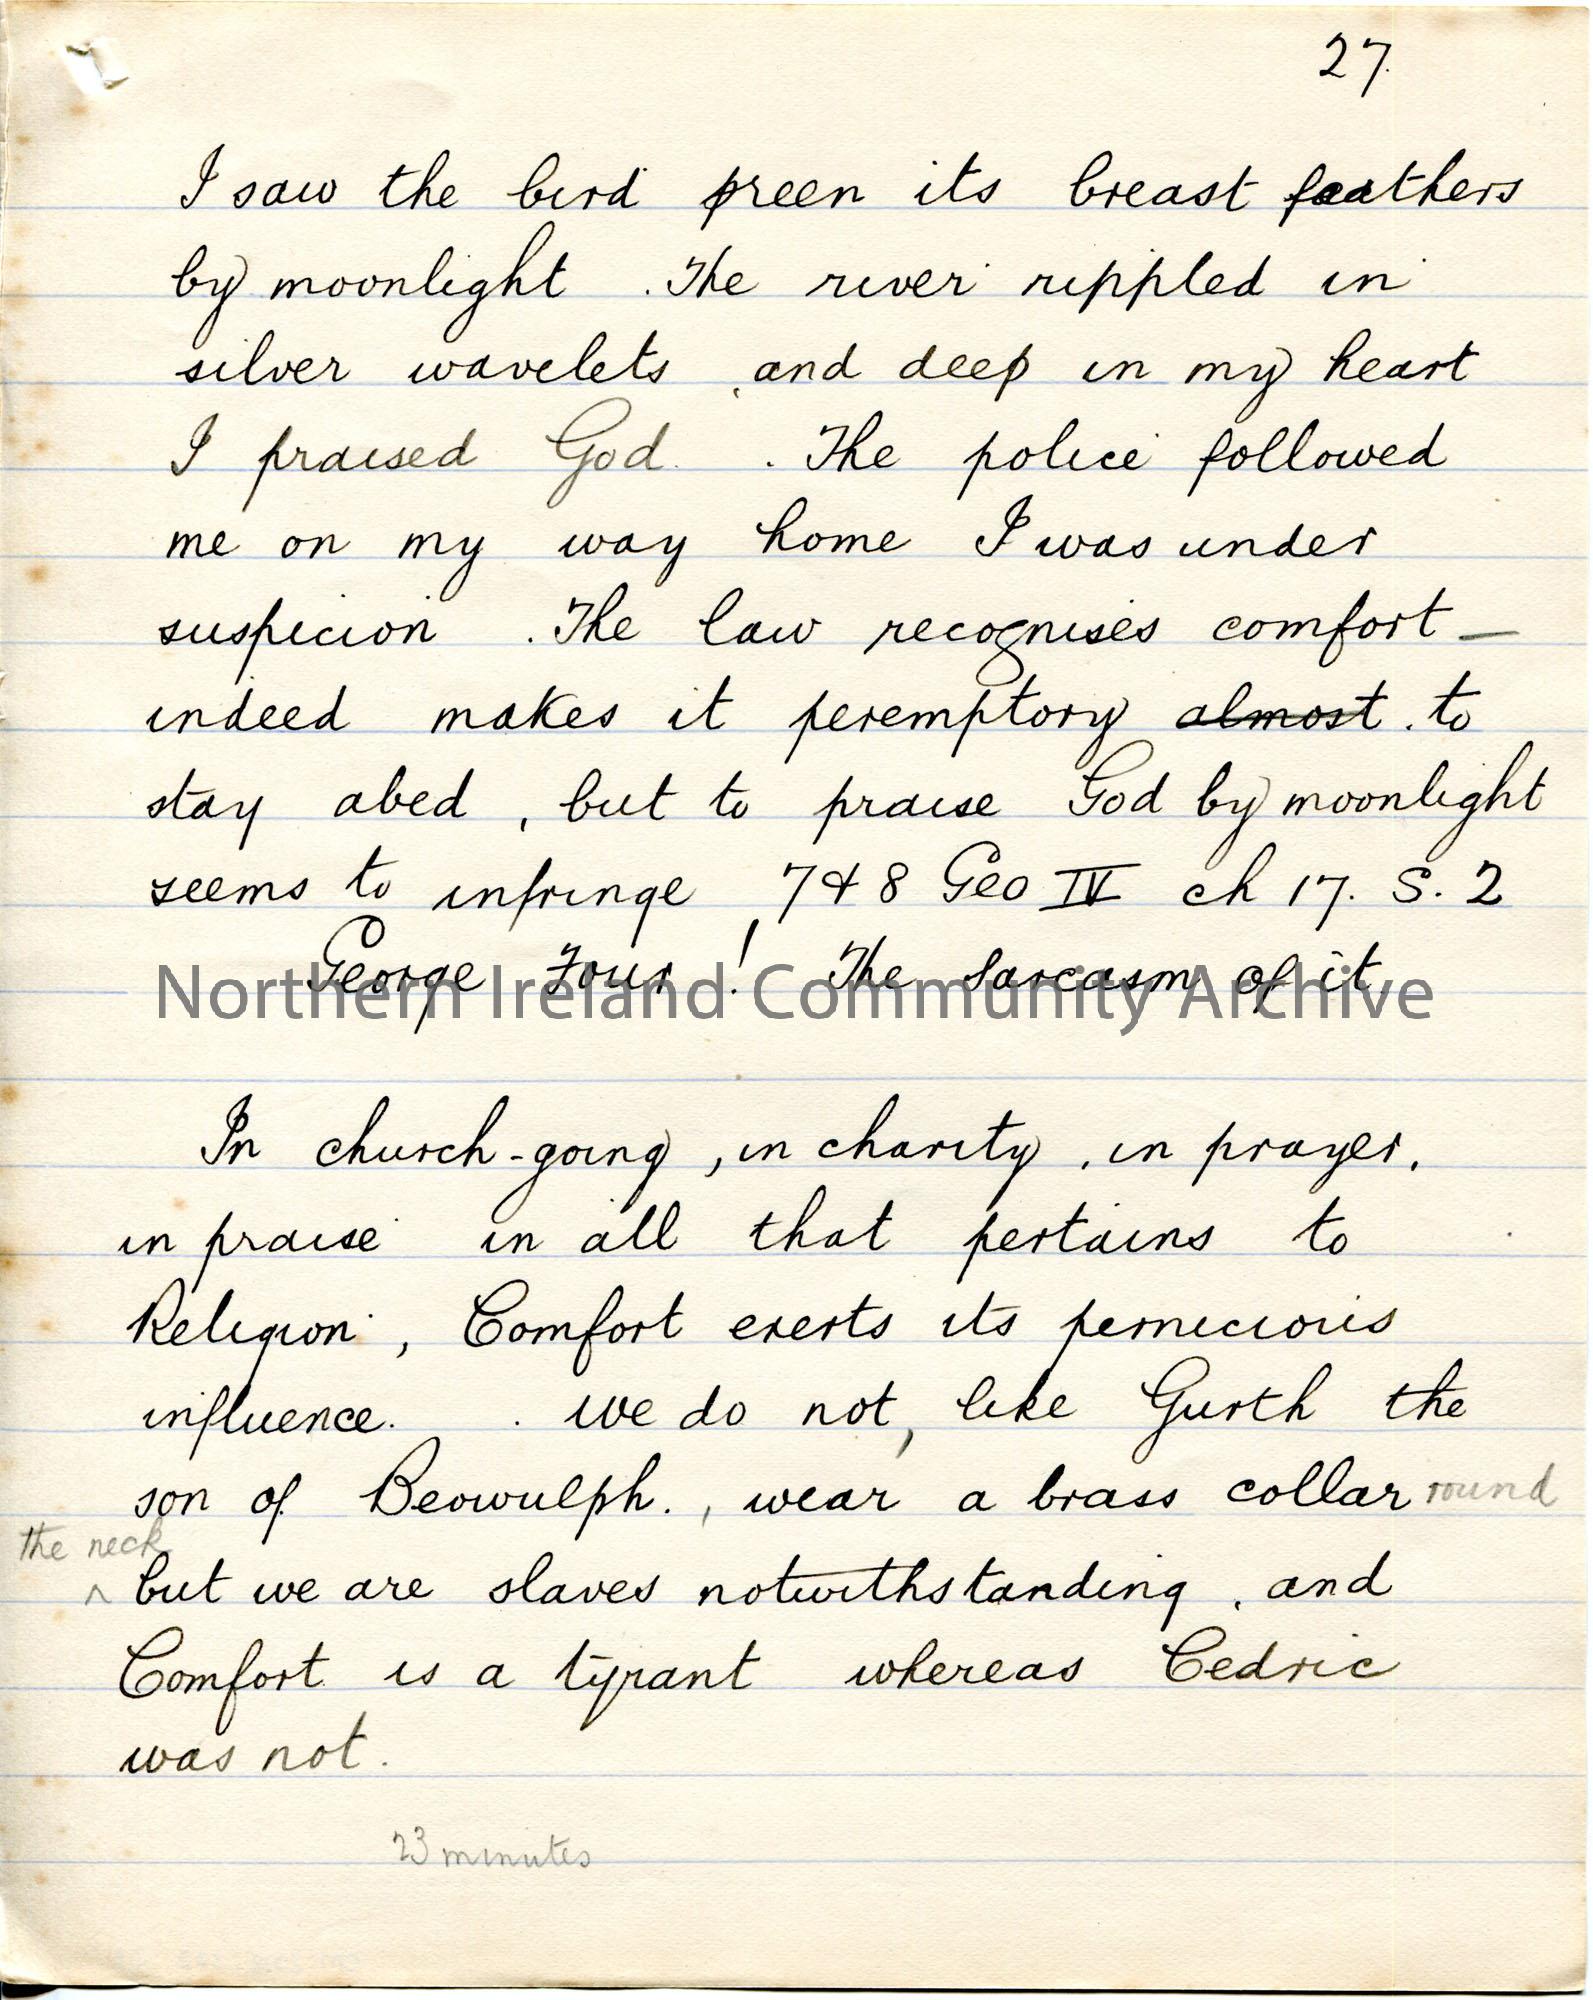 27.
I saw the bird preen its breast feathers
by moonlight . The river rippled in
silver wavelets , and deep in my heart
I praised God . The police followed
me on my way home I was under
suspicion . The law recognises comfort —
indeed makes it peremptory almost . to
stay abed , but to praise God by moonlight
seems to infringe 7 & 8 Geo IV ch 17. S. 2
George Four ! The sarcasm of it
Northern Ireland Community Archive
In church-going , in charity , in prayer ,
in praise in all that pertains to
Religion , Comfort exerts its pernicious
influence. . We do not, like Gurth the
son of Beowulph. , wear a brass collar round
the neck
^ but we are slaves notwithstanding , and
Comfort is a tyrant whereas Cedric
was not .
23 minutes